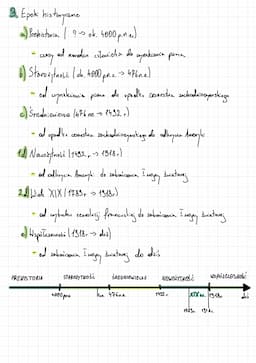 3. Epoki historyczne
a) Prehistoria ( ? -> ok. 4000 p.n.e.)
- czasy od narodzin człowieka do wynalezienia pisma
b) Starożytność (ok. 4000 p.n.e. -> 476 n.e.)
- od wynalezienia pisma do upadku cesarstwa zachodniorzymskiego
c) Średniowiecze (476 ne -> 1492 r.)
- od upadku cesarstwa zachodniorzymskiego do odkrycia Ameryki
1 d) Nowożytność (1492 r. -> 1918 r.)
- od odkrycia Ameryki do zakończenia I wojny światowej
2 d) Wiek XIX (1789 r. -> 1918 r.)
- od wybuchu rewolucji francuskiej do zakończenia I wojny światowej
e) Współczesność (1918 r. -> dziś)
- od zakończenia I wojny światowej do dziś
PREHISTORIA STAROŻYTNOŚĆ ŚREDNIOWIECZE NOWOŻYTNOŚĆ WSPÓŁCZESNOŚĆ
4000 pne 476 ne 1492 r. XIX w. 1918 r. dziś